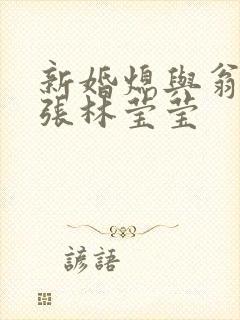 新婚熄與翁
張林莹莹
諺語